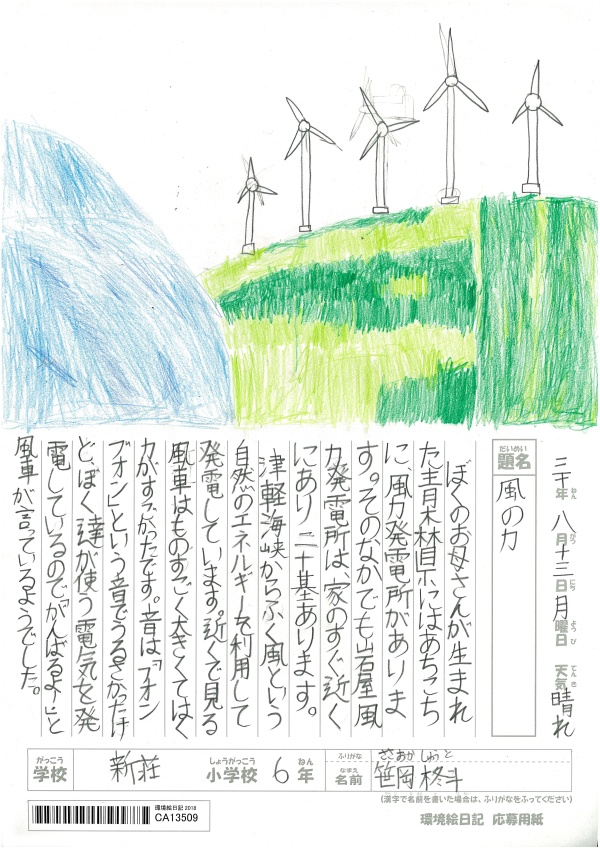 三十年八月十三日月曜日 天気晴れ
ねん がつ にち ようび てんき
だいめい
題名
風の力
ぼくのお母さんが生まれ
た青森県にはあちこち
に、風力発電所がありま
す。そのなかでも岩屋風
力発電所は、家のすぐ近く
にあり二十基あります。
津軽海峡からふく風という
自然のエネルギーを利用して
発電しています。近くで見る
風車はものすごく大きくてはく
力がすごかったです。音は「ブオン
ブオン」という音でうるさかったけ
ど、ぼく達が使う電気を発
電しているので「がんばるよ」と
風車が言っているようでした。
がっこう
学校
新荘
しょうがっこう
小学校
6
ねん
年
ふりがな
ささおか しゅうと
なまえ
名前
笹岡柊斗
(漢字で名前を書いた場合は、ふりがなをふってください)
環境絵日記 2018
CA13509
環境絵日記 応募用紙